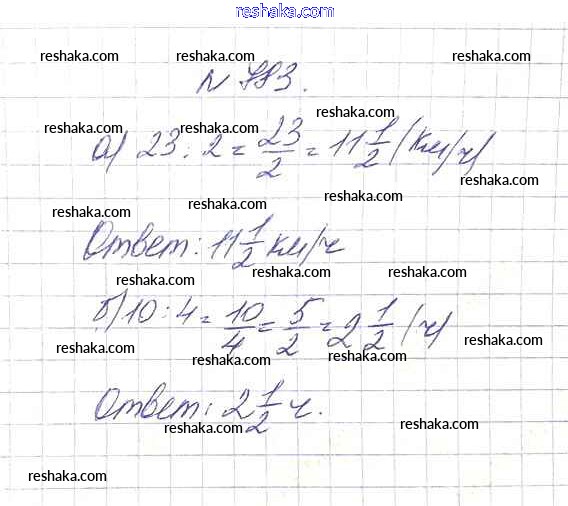 reshaka.com
reshaka.com reshaka.com reshaka.com
№ 883.
reshaka.com
reshaka.com
а) 23 : 2 = 23/2 = 11 1/2 (км/ч)
reshaka.com
reshaka.com reshaka.com
reshaka.com
Ответ: 11 1/2 км/ч
reshaka.com reshaka.com reshaka.com
б) 10 : 4 = 10/4 = 5/2 = 2 1/2 (ч)
reshaka.com reshaka.com
reshaka.com reshaka.com
Ответ: 2 1/2 ч.
reshaka.com reshaka.com reshaka.com
reshaka.com